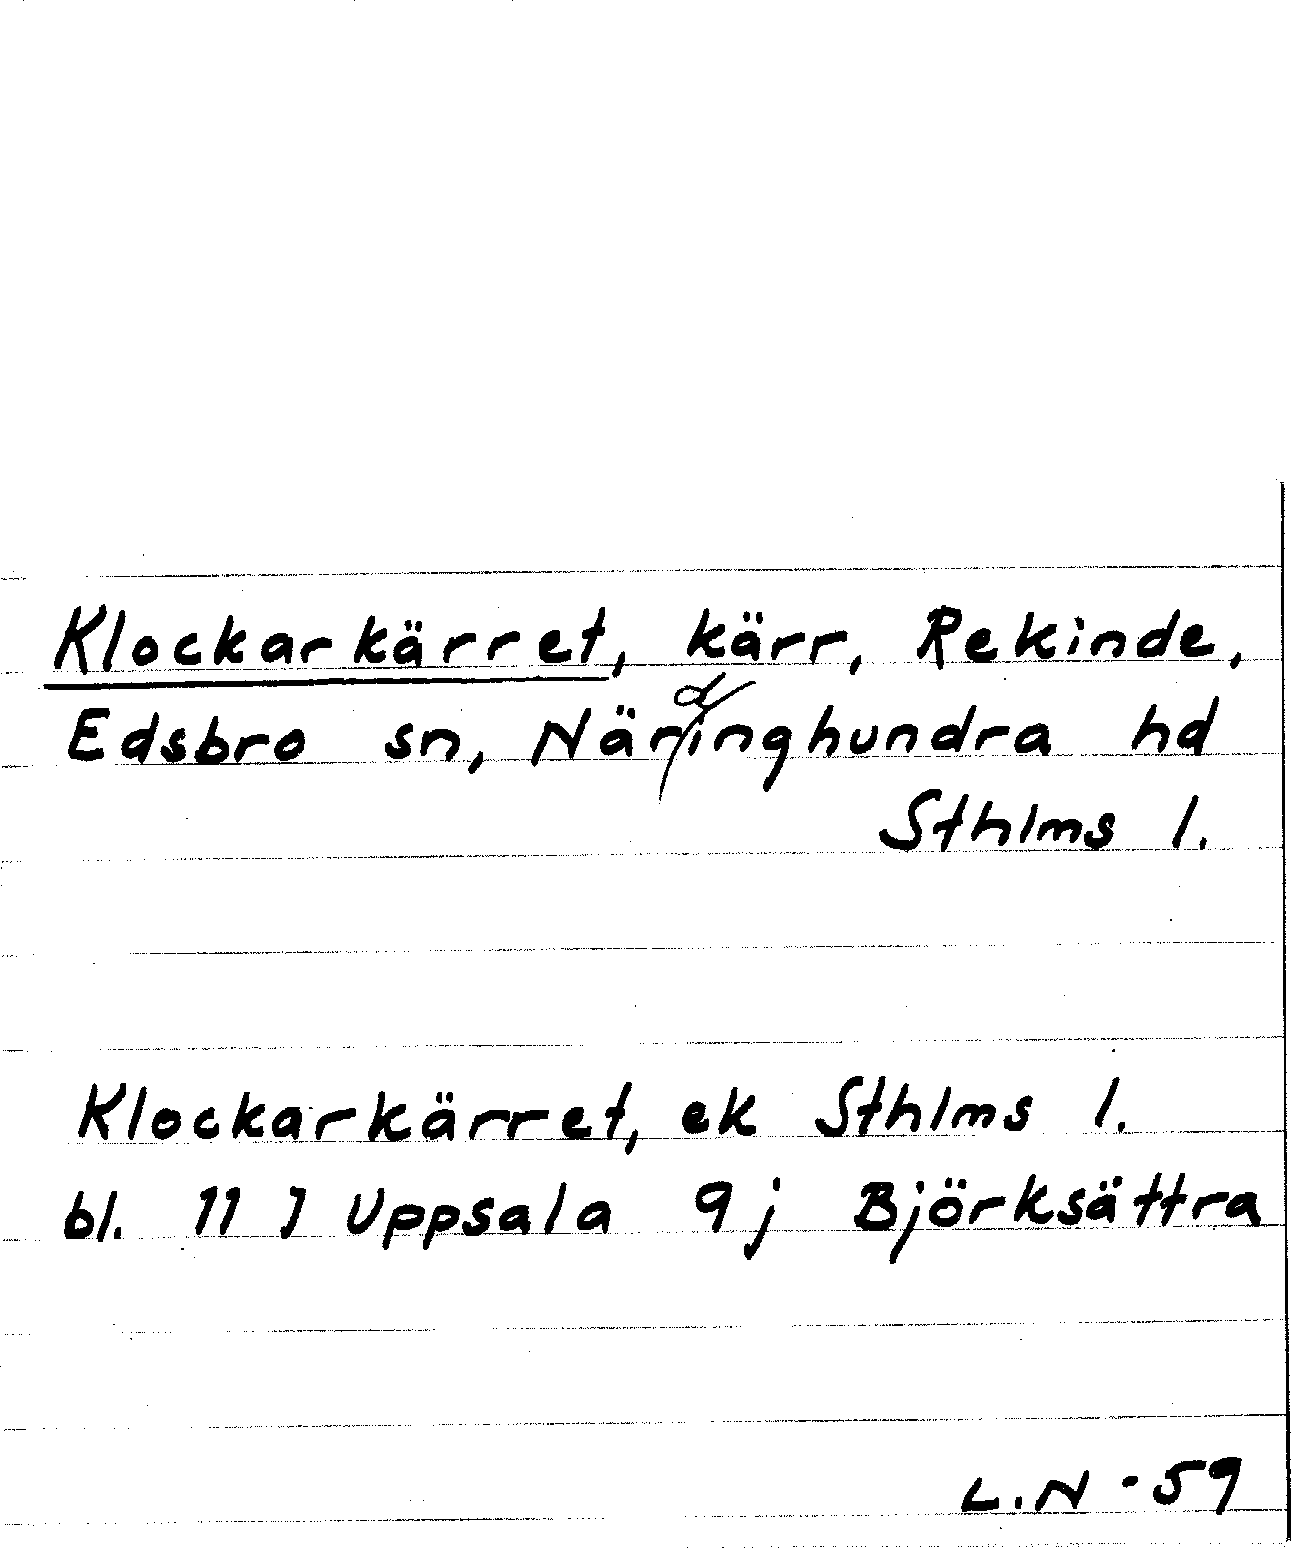 Klockarkärret, kärr, Rekinde,
Edsbro sn, Närdinghundra hd
Sthlms l.
Klockarkärret, ek Sthlms l.
bl. 11 J Uppsala 9j Björksättra
L.N - 59